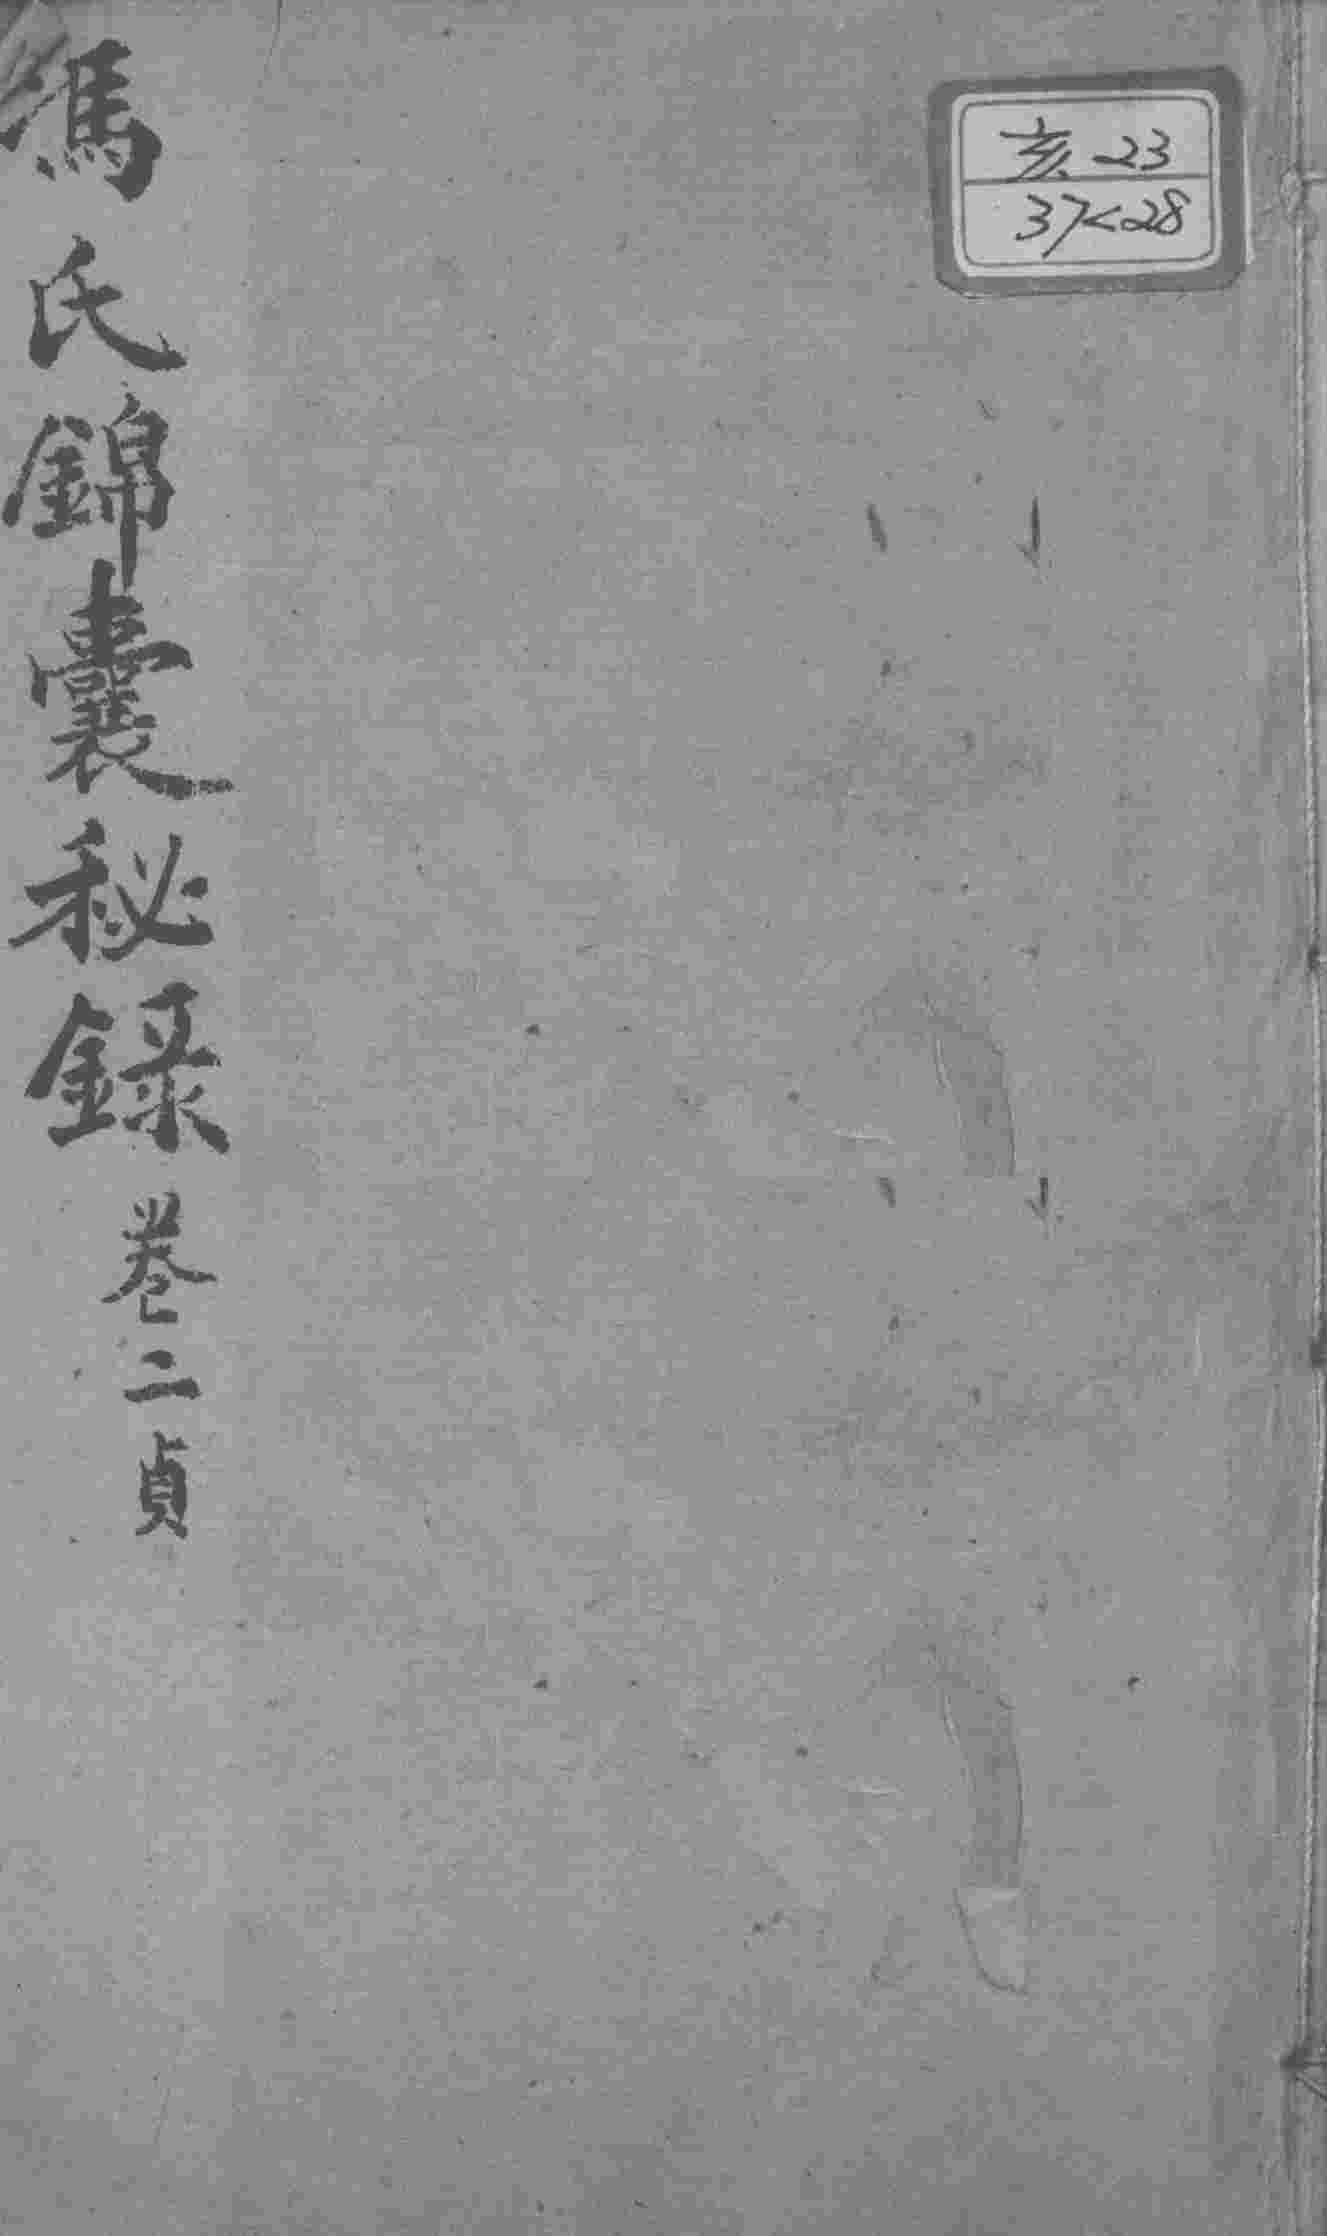 亥 23
37<28
馮氏錦囊秘録 卷二 貞